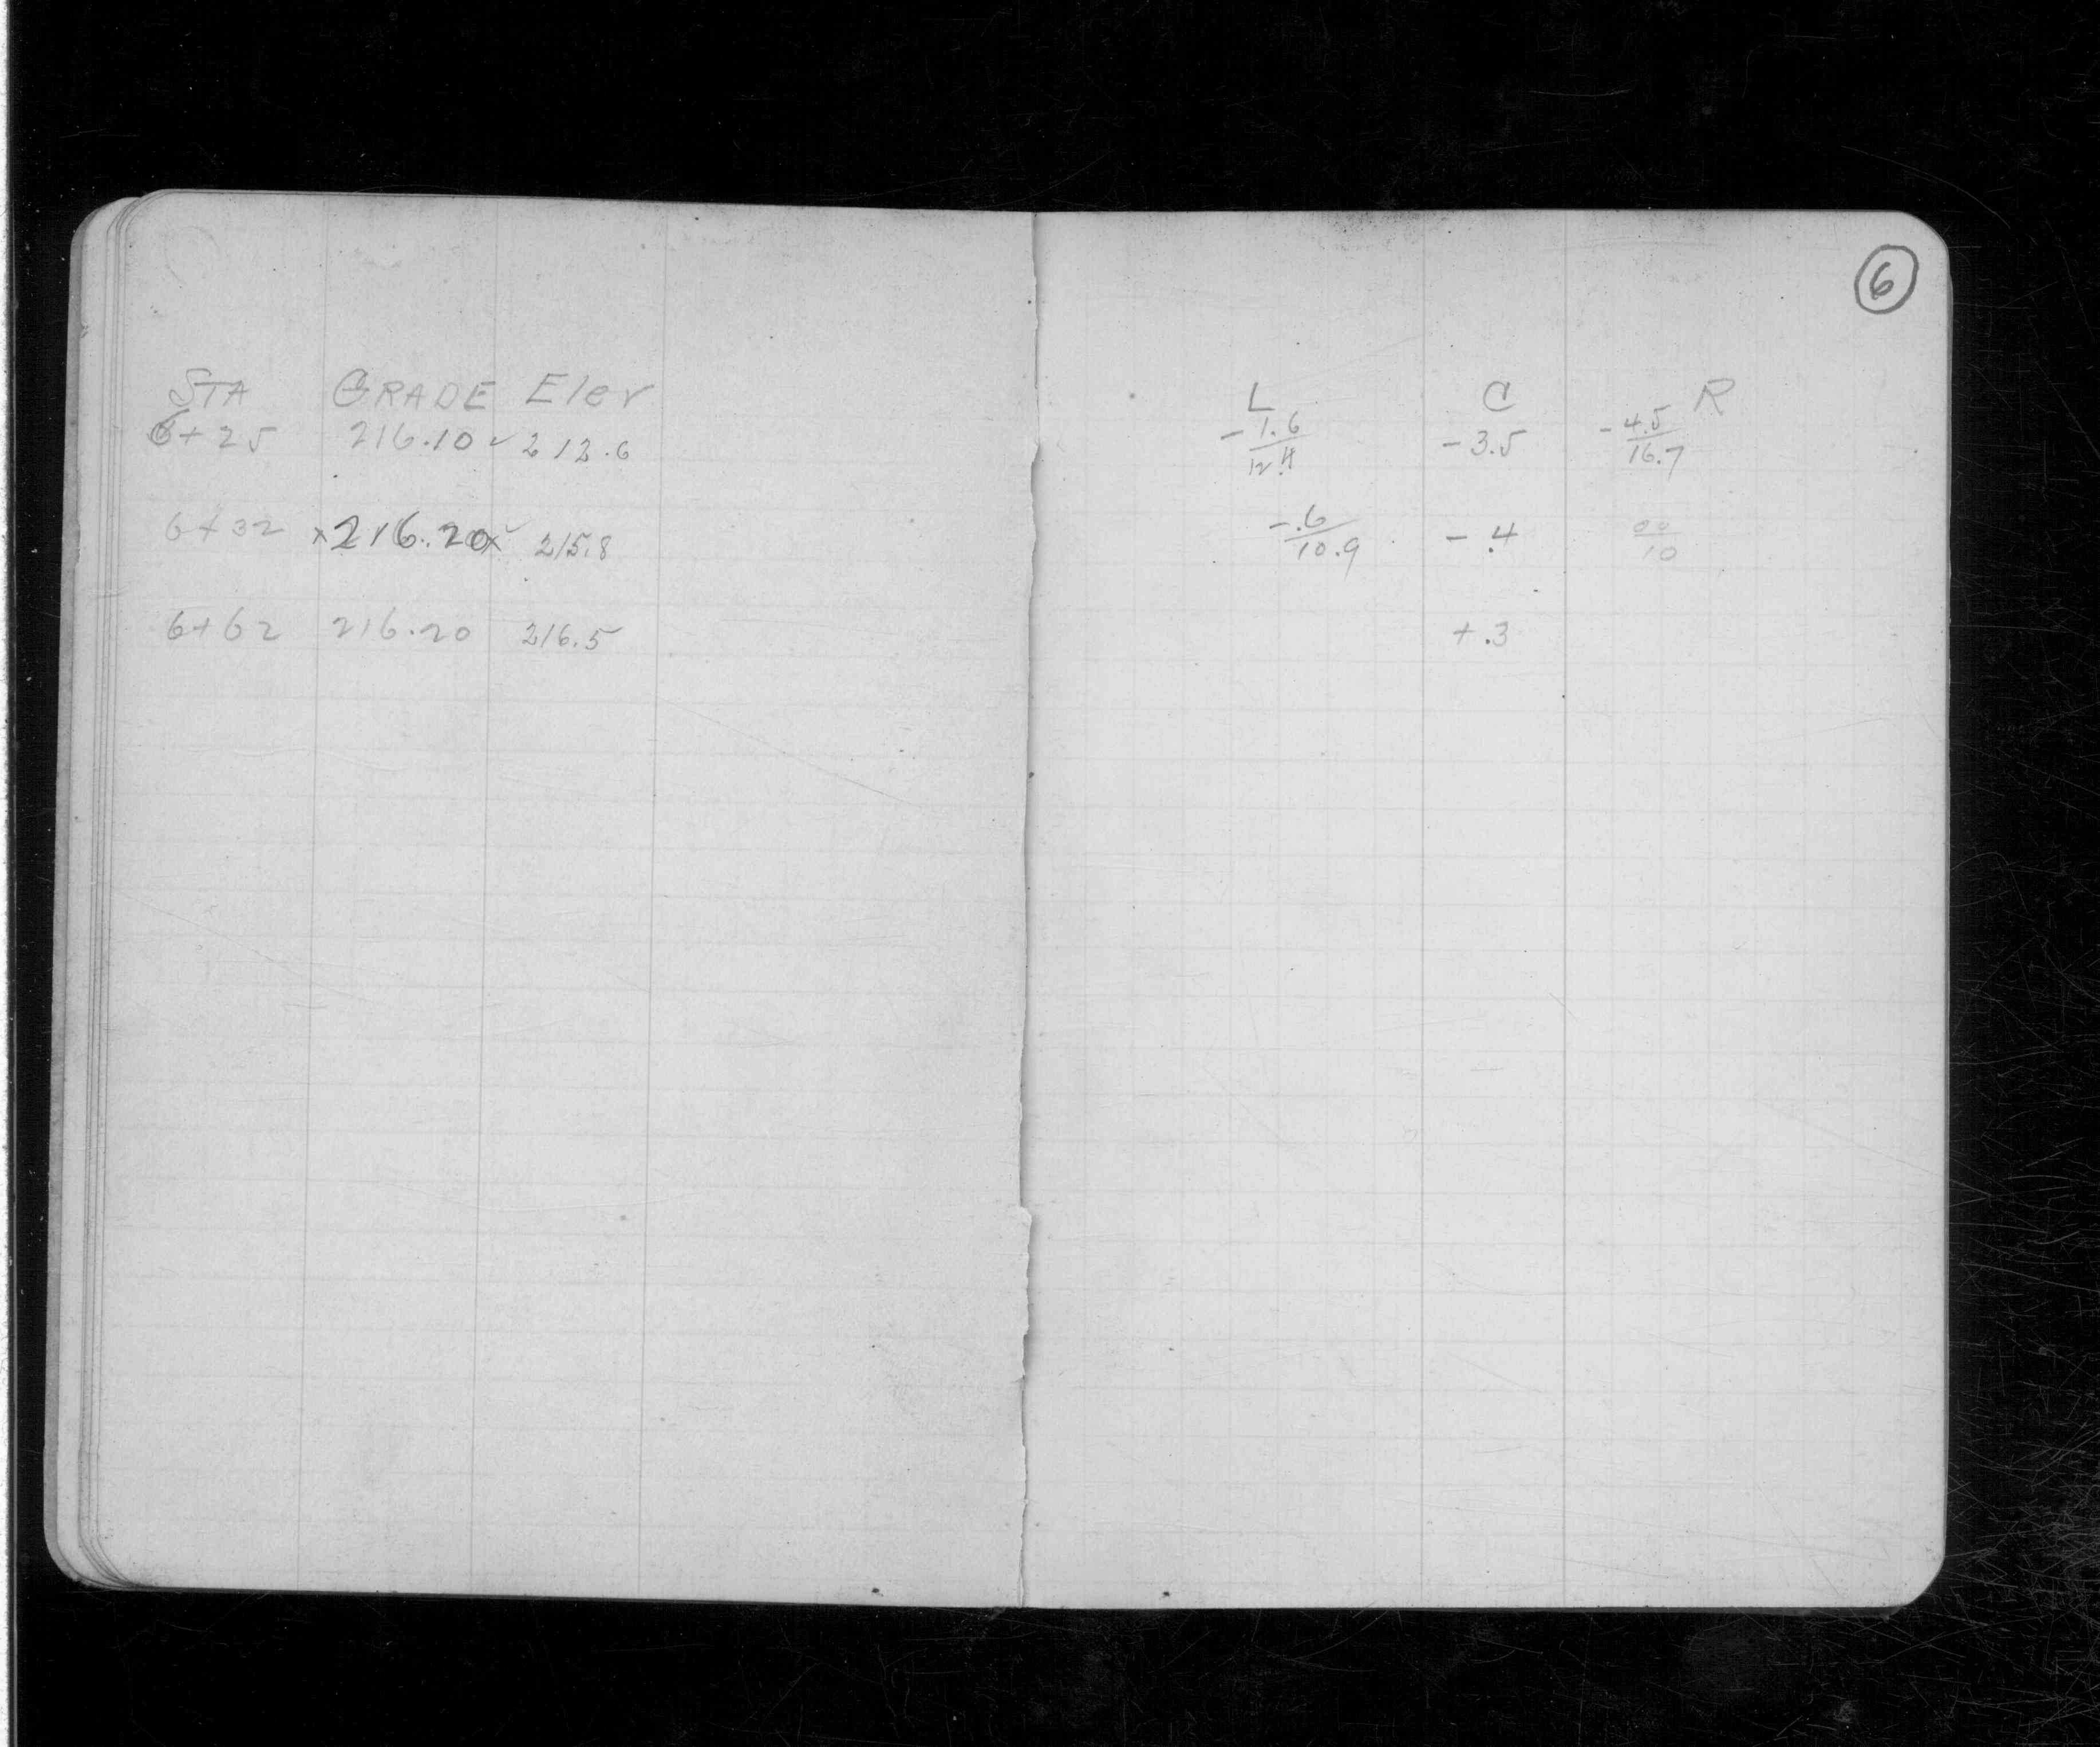 6
STA GRADE Elev L C R
6+25 216.10 ✓ 212.6 -1.6/12.4 -3.5 -4.5/16.7
6+32 x216.20x ✓ 215.8 -.6/10.9 -.4 00/10
6+62 216.20 216.5 +.3